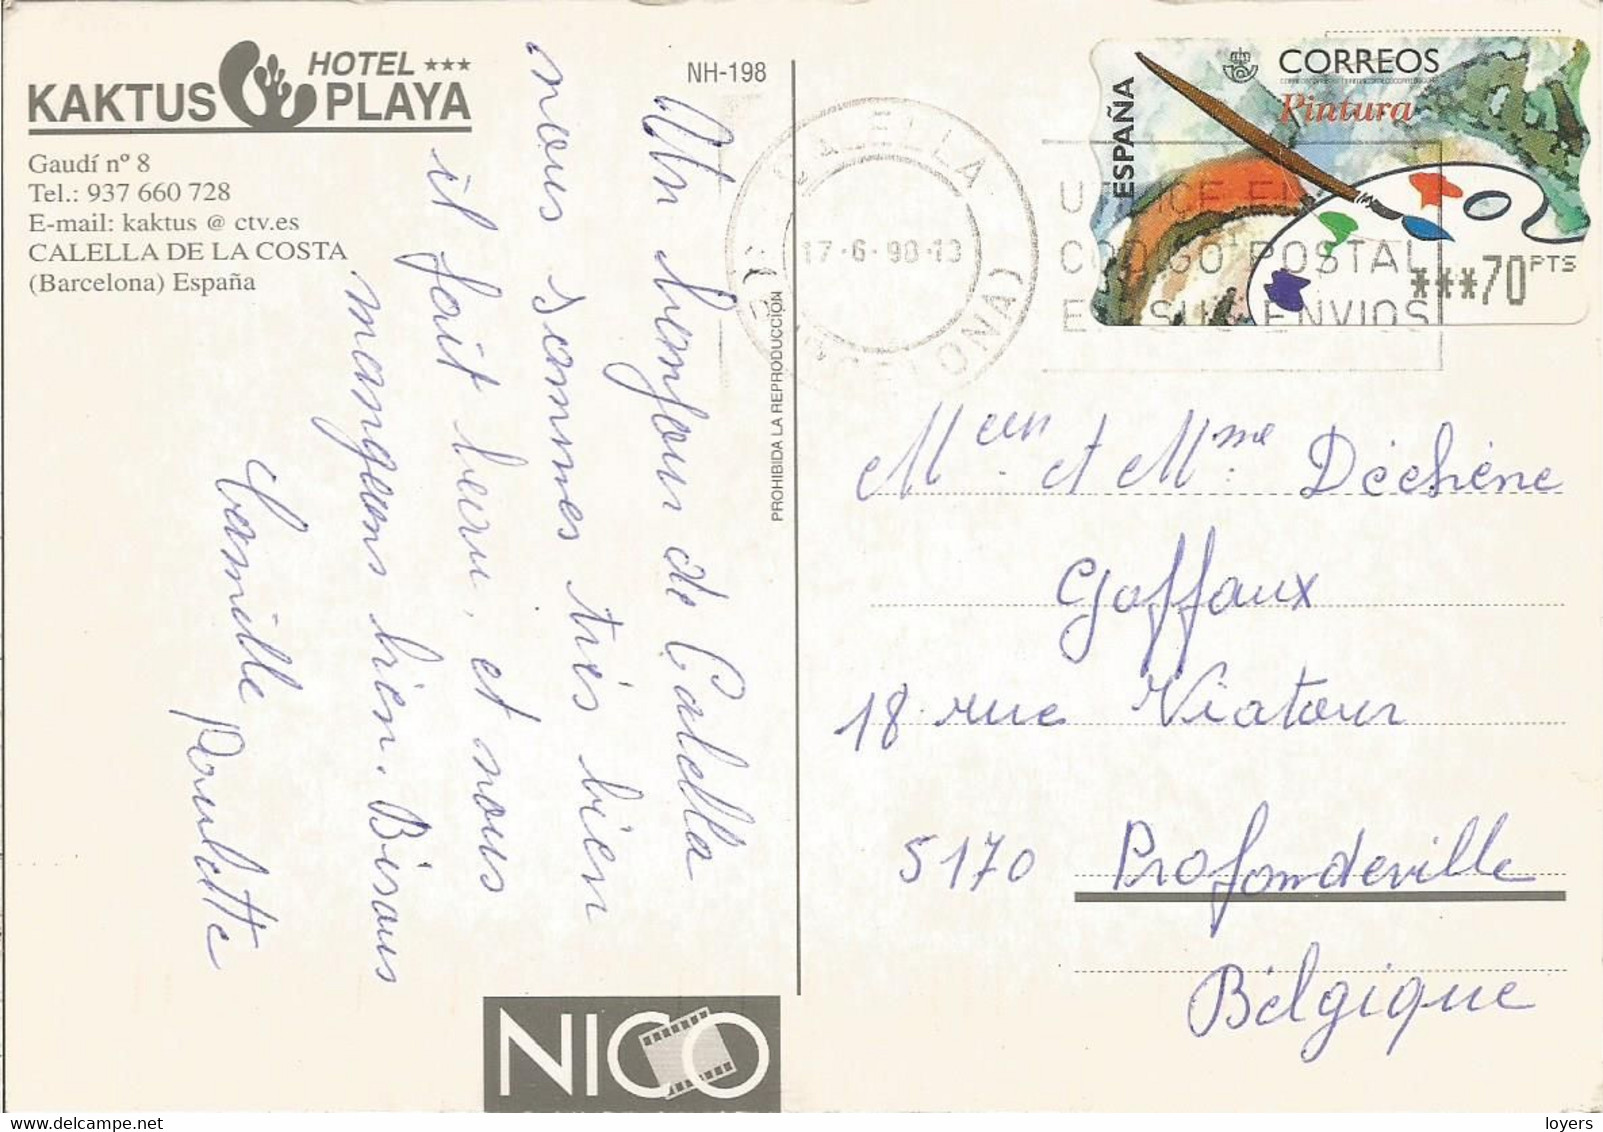 HOTEL ***
KAKTUS PLAYA
Gaudí nº 8
Tel.: 937 660 728
E-mail: kaktus @ ctv.es
CALELLA DE LA COSTA
(Barcelona) España
NH-198
Un bonjour de Calella
nous sommes très bien
il fait beau, et nous
mangeons bien. Bisous
Camille Paulette
PROHIBIDA LA REPRODUCCIÓN
NICO
CALELLA
17-6-98-13
(BARCELONA)
UTILICE EL
CODIGO POSTAL
EN SUS ENVIOS
CORREOS
Pintura
ESPAÑA
***70 PTS
et Mme Déchène
Gaffaux
18 rue Viatour
5170 Profondeville
Belgique
delcampe.net
loyers